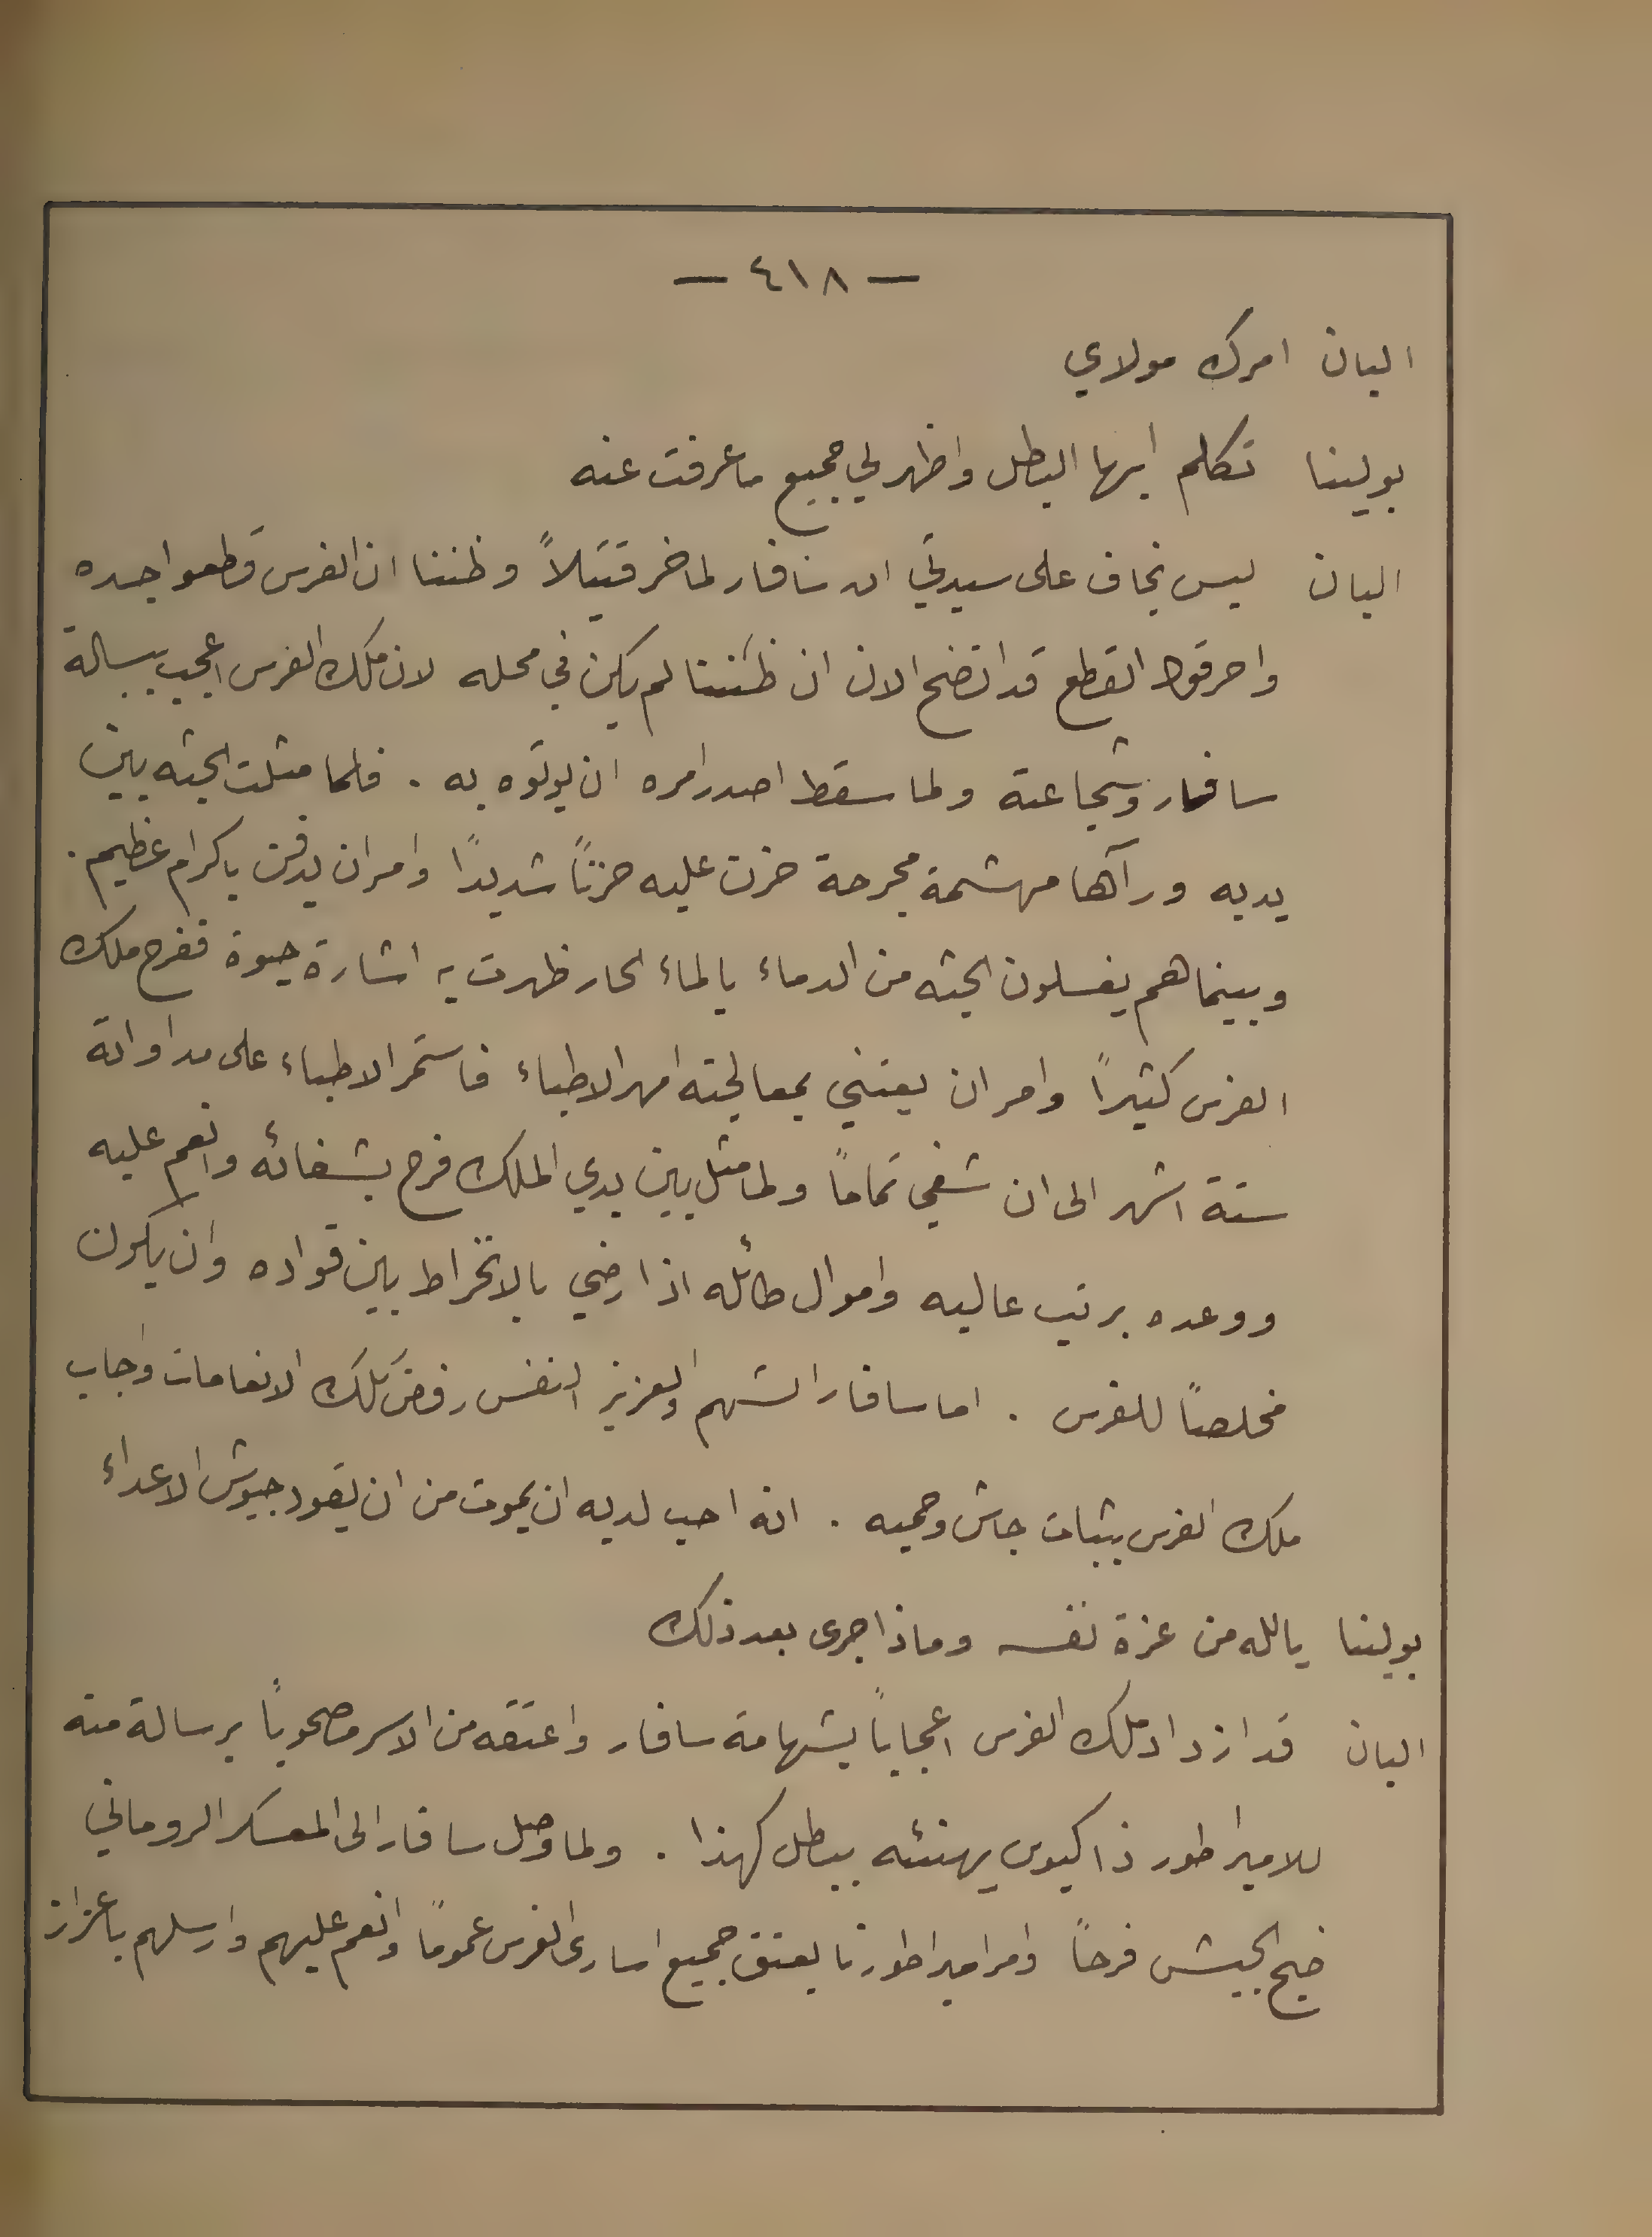 — ٤١٨ —
البان امرك مولاي
بولينا تكلم ايها البطل واظهر لي جميع ما عرفت عنه
البان ليس بخاف على سيدتي ان سافار لما خر قتيلاً وظننا ان الفرس قطعوا جسده
واحرقوا القطع قد اتضح الان ان ظننا لم يكن في محله لان ملك الفرس اعجب ببسالة
سافار وشجاعته ولما سقط اصدر امره ان يوتوه به . فلما مثلت الجثه بين
يديه ورآها مهشمة مجرحة حزن عليه حزنًا شديدًا وامر ان يدفن باكرام عظيم .
وبينما هم يغسلون الجثه من الدماء بالماء الحار ظهرت به اشارة حيوة ففرح ملك
الفرس كثيرًا وامر ان يعتني بمعالجته امهر الاطباء فاستمر الاطباء على مداواته
ستة اشهر الى ان شفي تمامًا ولما مثل بين يدي الملك فرح بشفائه وانعم عليه
ووعده برتب عاليه واموال طائله اذا رضي بالانخراط بين قواده وان يكون
مخلصًا للفرس . اما سافار الشهم والعزيز النفس رفض تلك الانعامات واجاب
ملك الفرس بثبات جاش وحميه . انه احب لديه ان يموت من ان يقود جيوش الاعداء
بولينا يالله من عزة نفسه وماذا جرى بعد ذلك
البان قد ازداد ملك الفرس اعجاباً بشهامة سافار واعتقه من الاسر مصحوبًا برسالة منه
للامبراطور ذاكيوس يهنئه ببطل كهذا . ولما وصل سافار الى المعسكر الروماني
ضج الجيش فرحاً وامر امبراطورنا بعتق جميع اسارى الفرس عمومًا وانعم عليهم وارسلهم باعزاز